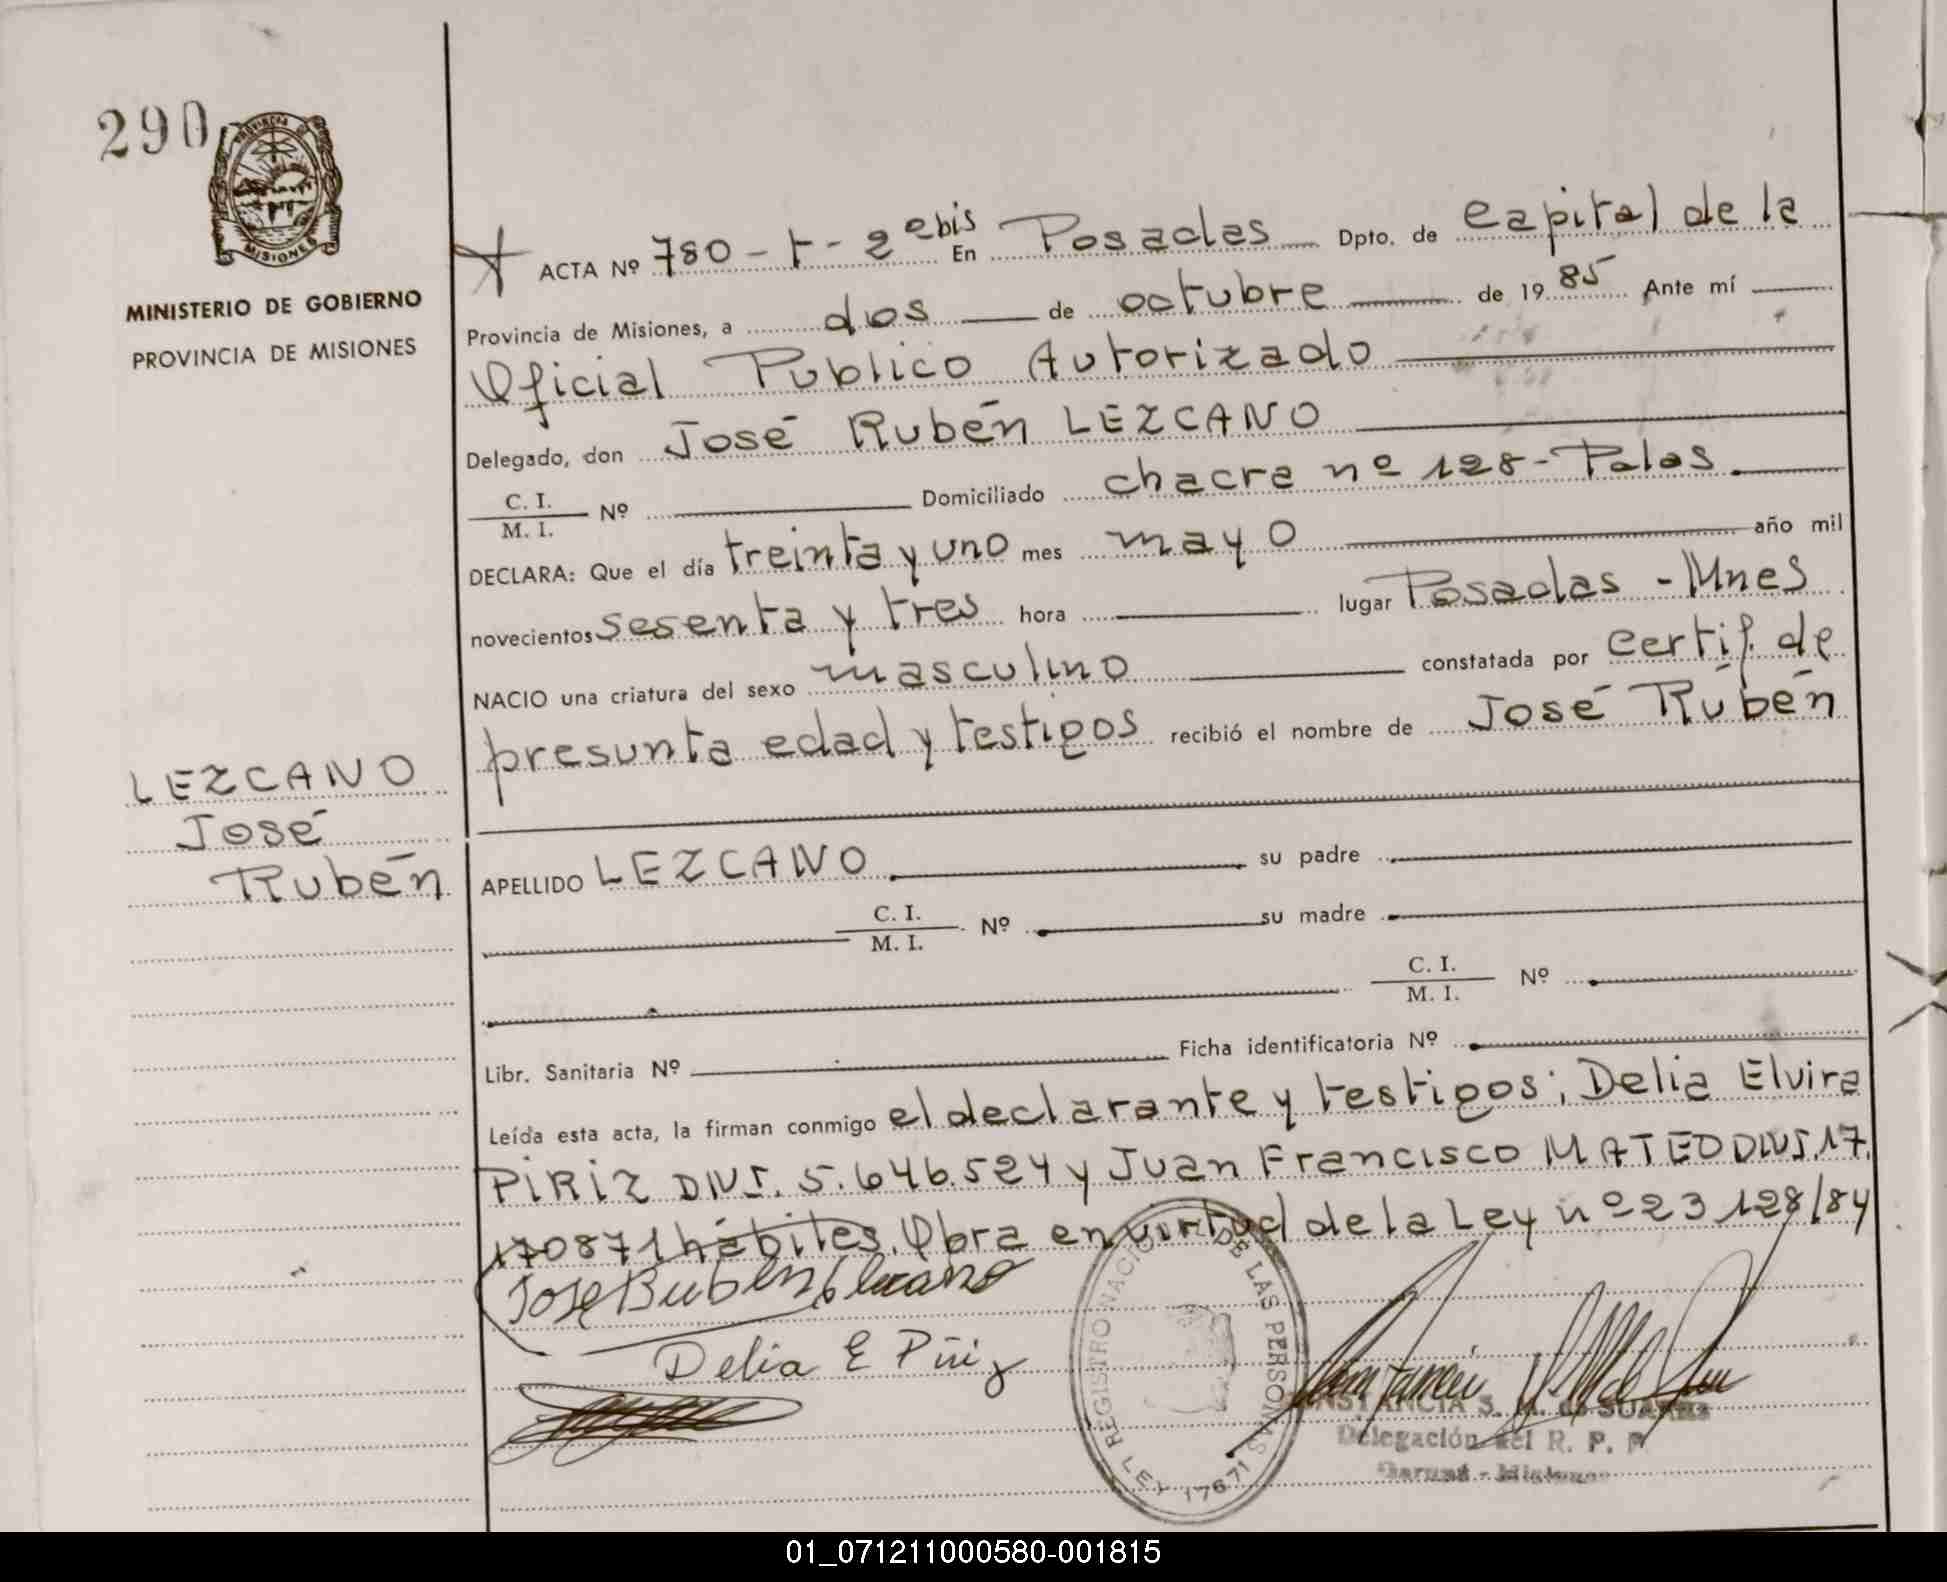 290
PROVINCIA DE
MISIONES
MINISTERIO DE GOBIERNO
PROVINCIA DE MISIONES
LEZCANO
José
Rubén
ACTA Nº 780 - t - 2 ebis En Posadas Dpto. de capital de la
Provincia de Misiones, a dos de octubre de 1985 Ante mí
Oficial Publico Autorizado
Delegado, don José Rubén LEZCANO
C. I.
M. I. Nº Domiciliado chacra nº 128-Pdas
DECLARA: Que el día treinta y uno mes mayo año mil
novecientos sesenta y tres hora lugar Posadas - Mnes
NACIO una criatura del sexo masculino constatada por certif. de
presunta edad y testigos recibió el nombre de José Rubén
APELLIDO LEZCANO su padre
C. I.
M. I. Nº su madre
C. I.
M. I. Nº
Libr. Sanitaria Nº Ficha identificatoria Nº
Leída esta acta, la firman conmigo el declarante y testigos; Delia Elvira
PIRIZ DNI. 5.646.524 y Juan Francisco MATEO DNI. 17.
170871 hábiles. Obra en virtud de la Ley nº 23 128/84
Jose Ruben Lezcano
Delia E Piriz
REGISTRO NACIONAL DE LAS PERSONAS
LEY 17671
CONSTANCIA S. M. de SUAREZ
Delegación del R. P. P.
Misiones
01_071211000580-001815